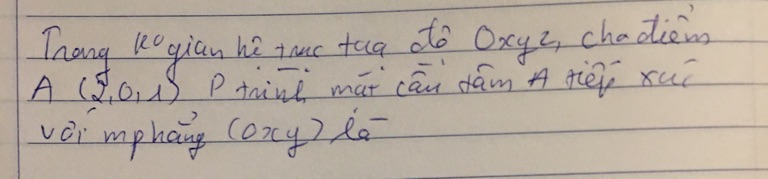 Trong ko gian hệ trục tọa độ Oxyz, cho điểm
A (2,0,1) P trình mặt cầu tâm A tiếp xúc
với mphẳng (Oxy) là